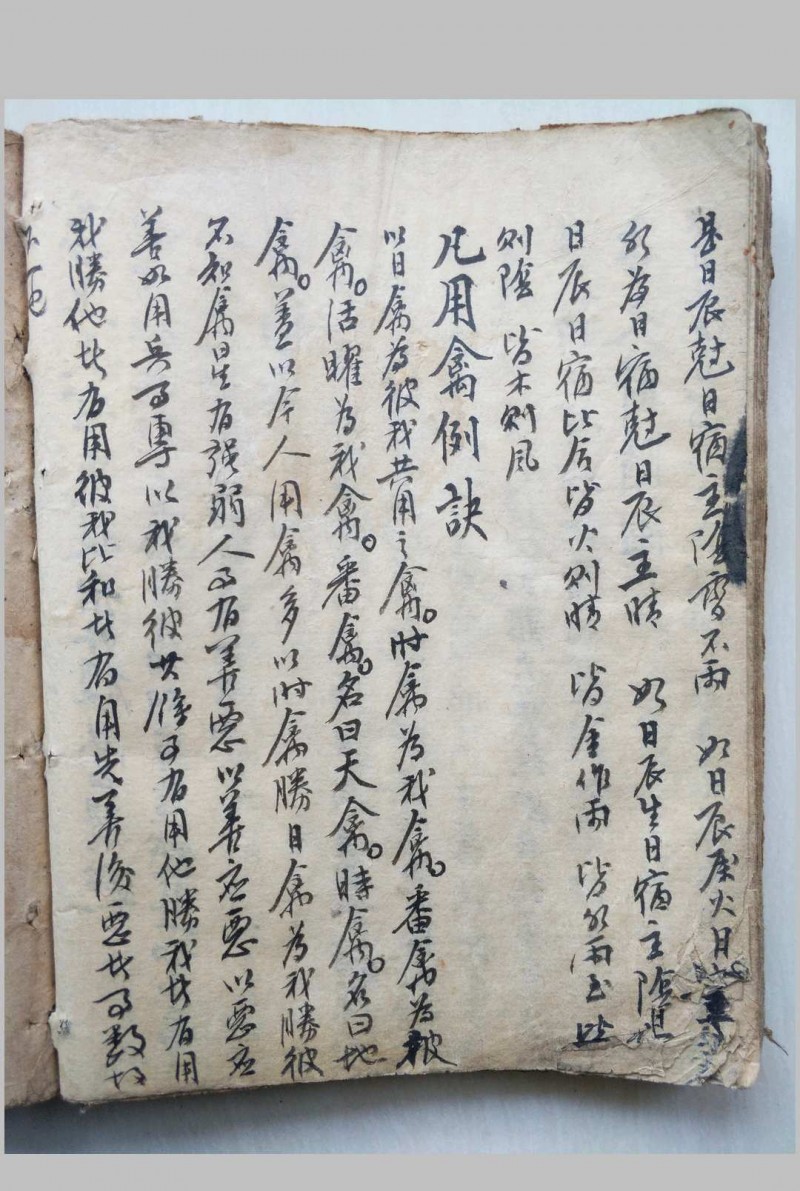 是日辰尅日宿主陰雲不雨 如日辰屬火日
水為日宿尅日辰主晴 如日辰生日宿主陰
日辰日宿比合皆火則晴 皆金作雨 皆水雨至 皆土
則陰 皆木則风
凡用禽例訣
以日禽為彼我共用之禽。时禽為我禽。番禽為彼
禽。活曜為我禽。番禽。名曰天禽。時禽。名曰地
禽。蓋以今人用禽多以时禽勝日禽為我勝彼
不知禽星有强弱人事有善惡以善应惡以惡应
善如用兵事專以我勝彼其應可有用他勝我者有用
我勝他者有用彼我比和者有用先善後惡者事數